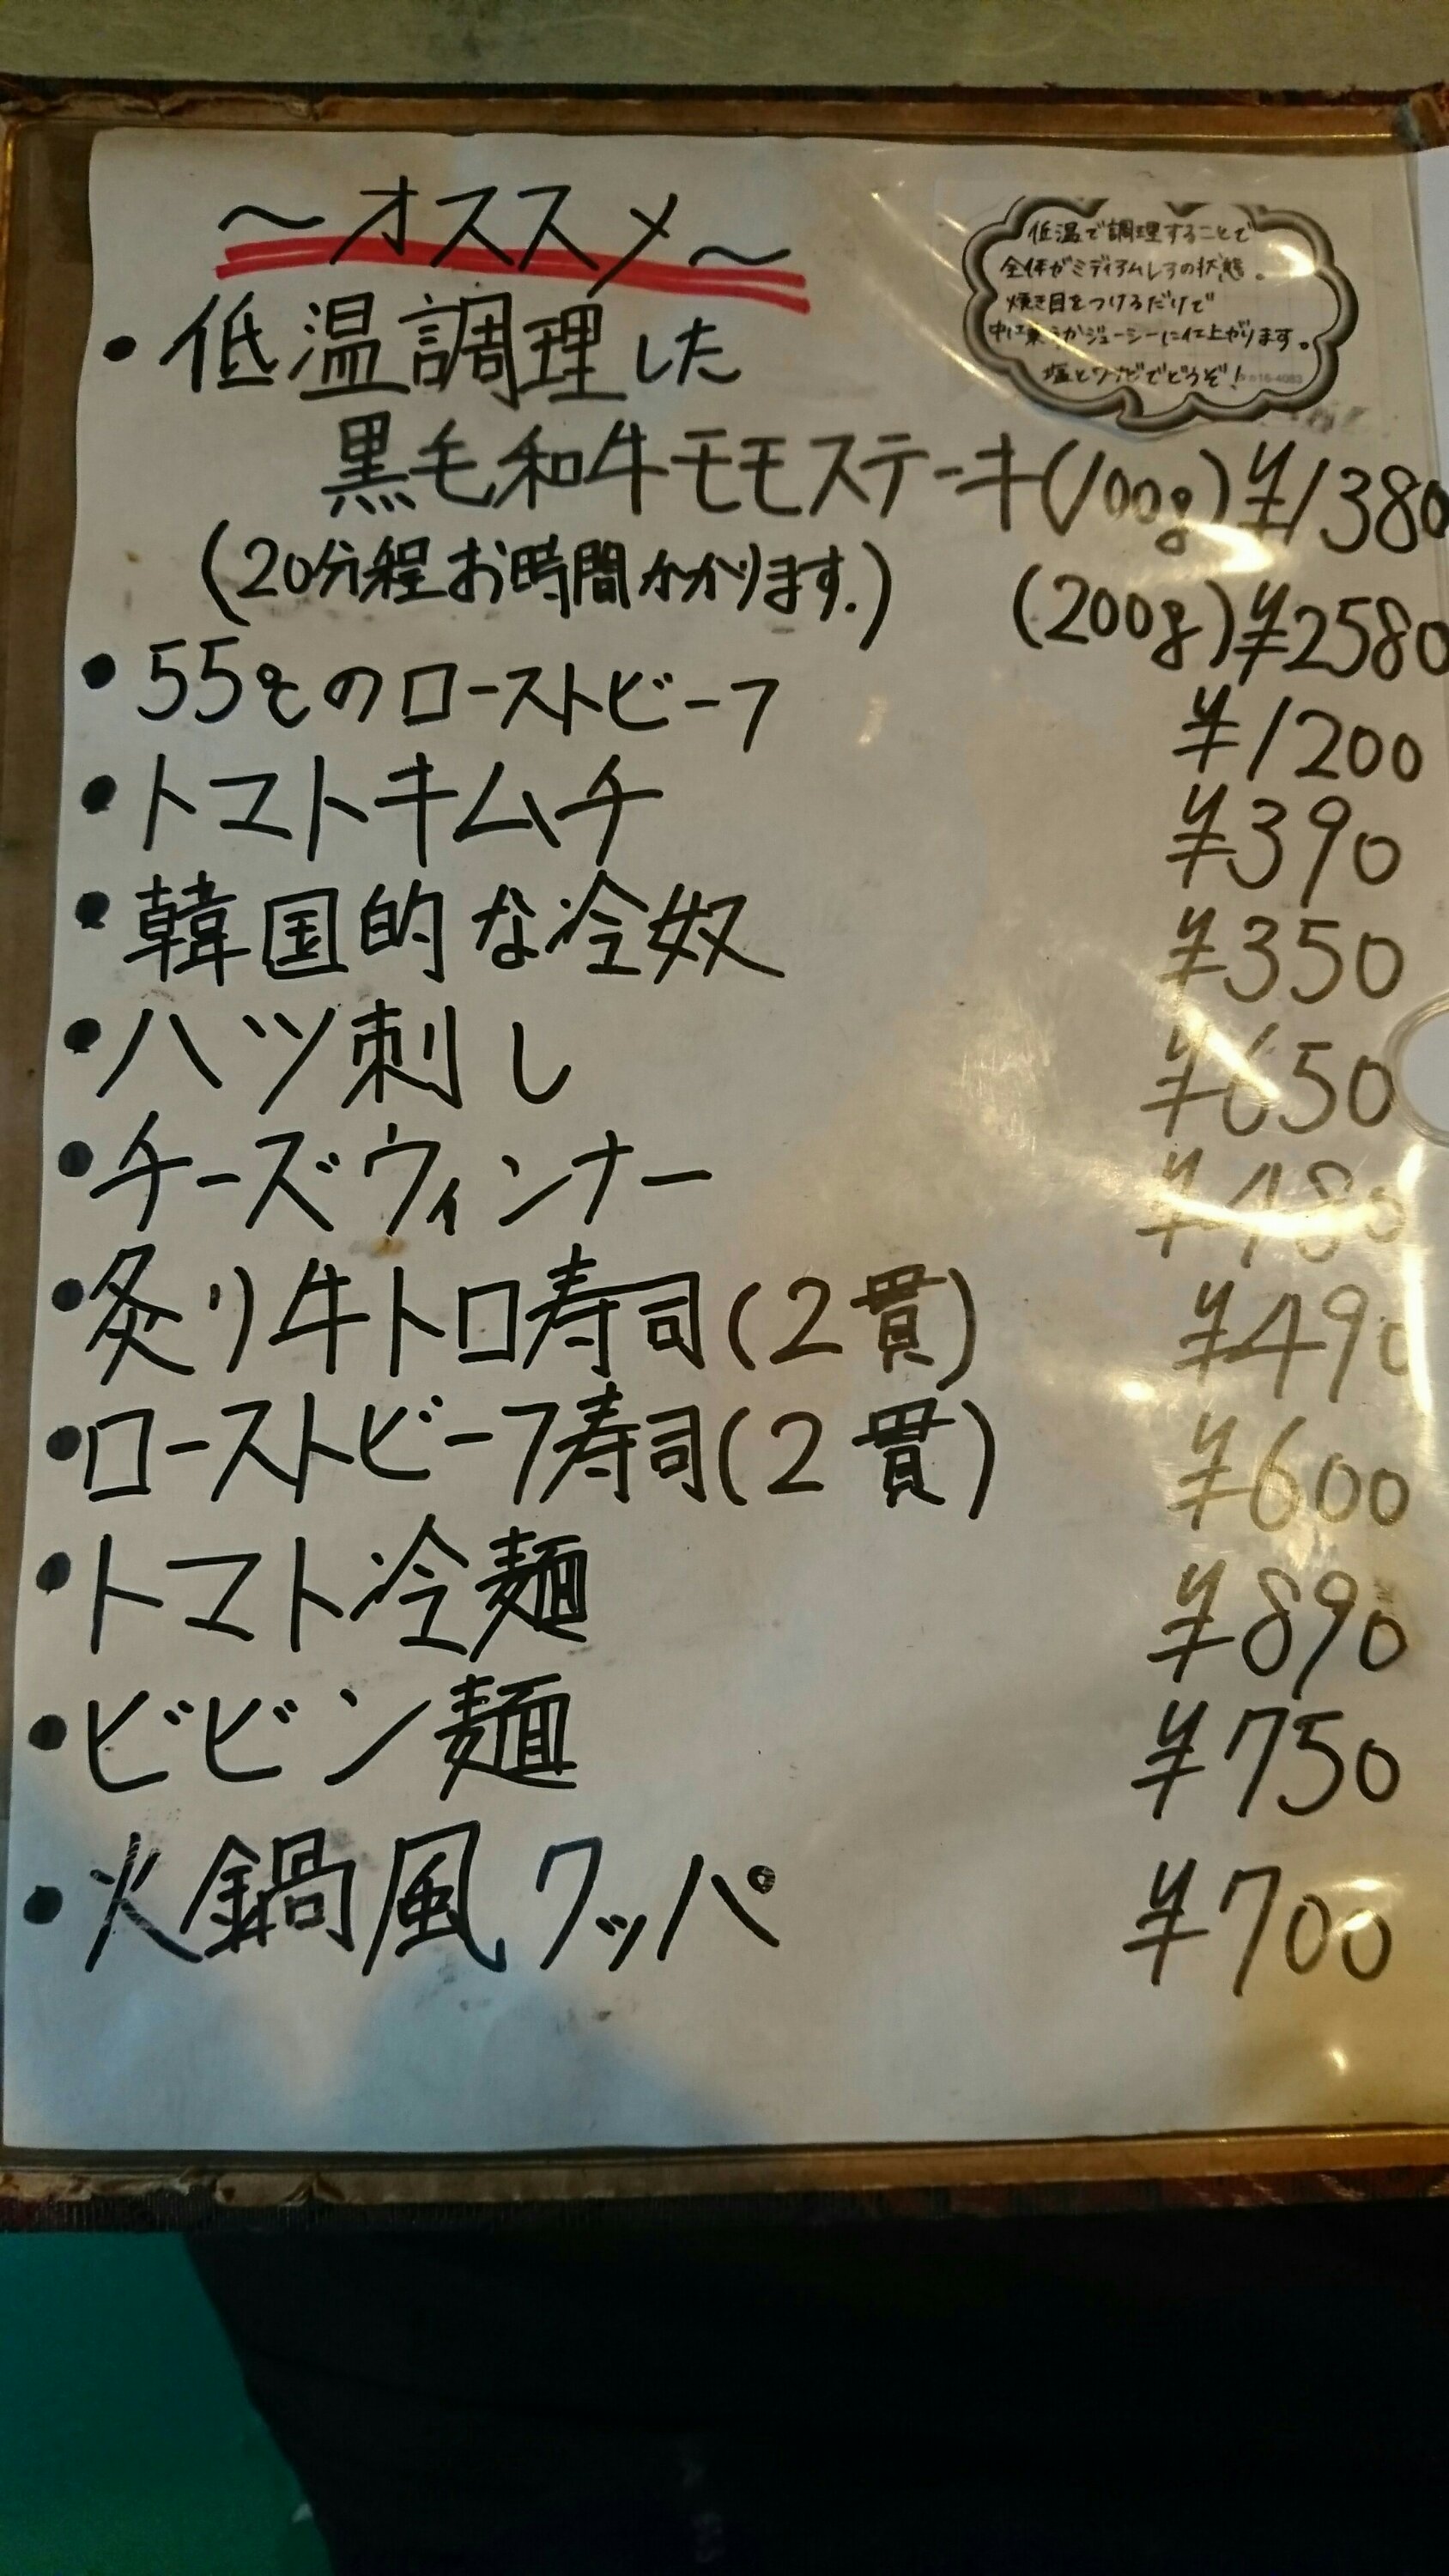 ～オススメ～
低温で調理することで
全体がミディアムレアの状態。
焼き目をつけるだけで
ジューシーに仕上がります。
塩とワサビでどうぞ!
・低温調理した
黒毛和牛モモステーキ(100g) ¥1380
(20分程お時間かかります。) (200g) ¥2580
・55℃のローストビーフ ¥1200
・トマトキムチ ¥390
・韓国的な冷奴 ¥350
・ハツ刺し ¥650
・チーズウィンナー ¥480
・炙り牛トロ寿司(2貫) ¥490
・ローストビーフ寿司(2貫) ¥600
・トマト冷麺 ¥890
・ビビン麺 ¥750
・火鍋風クッパ ¥700